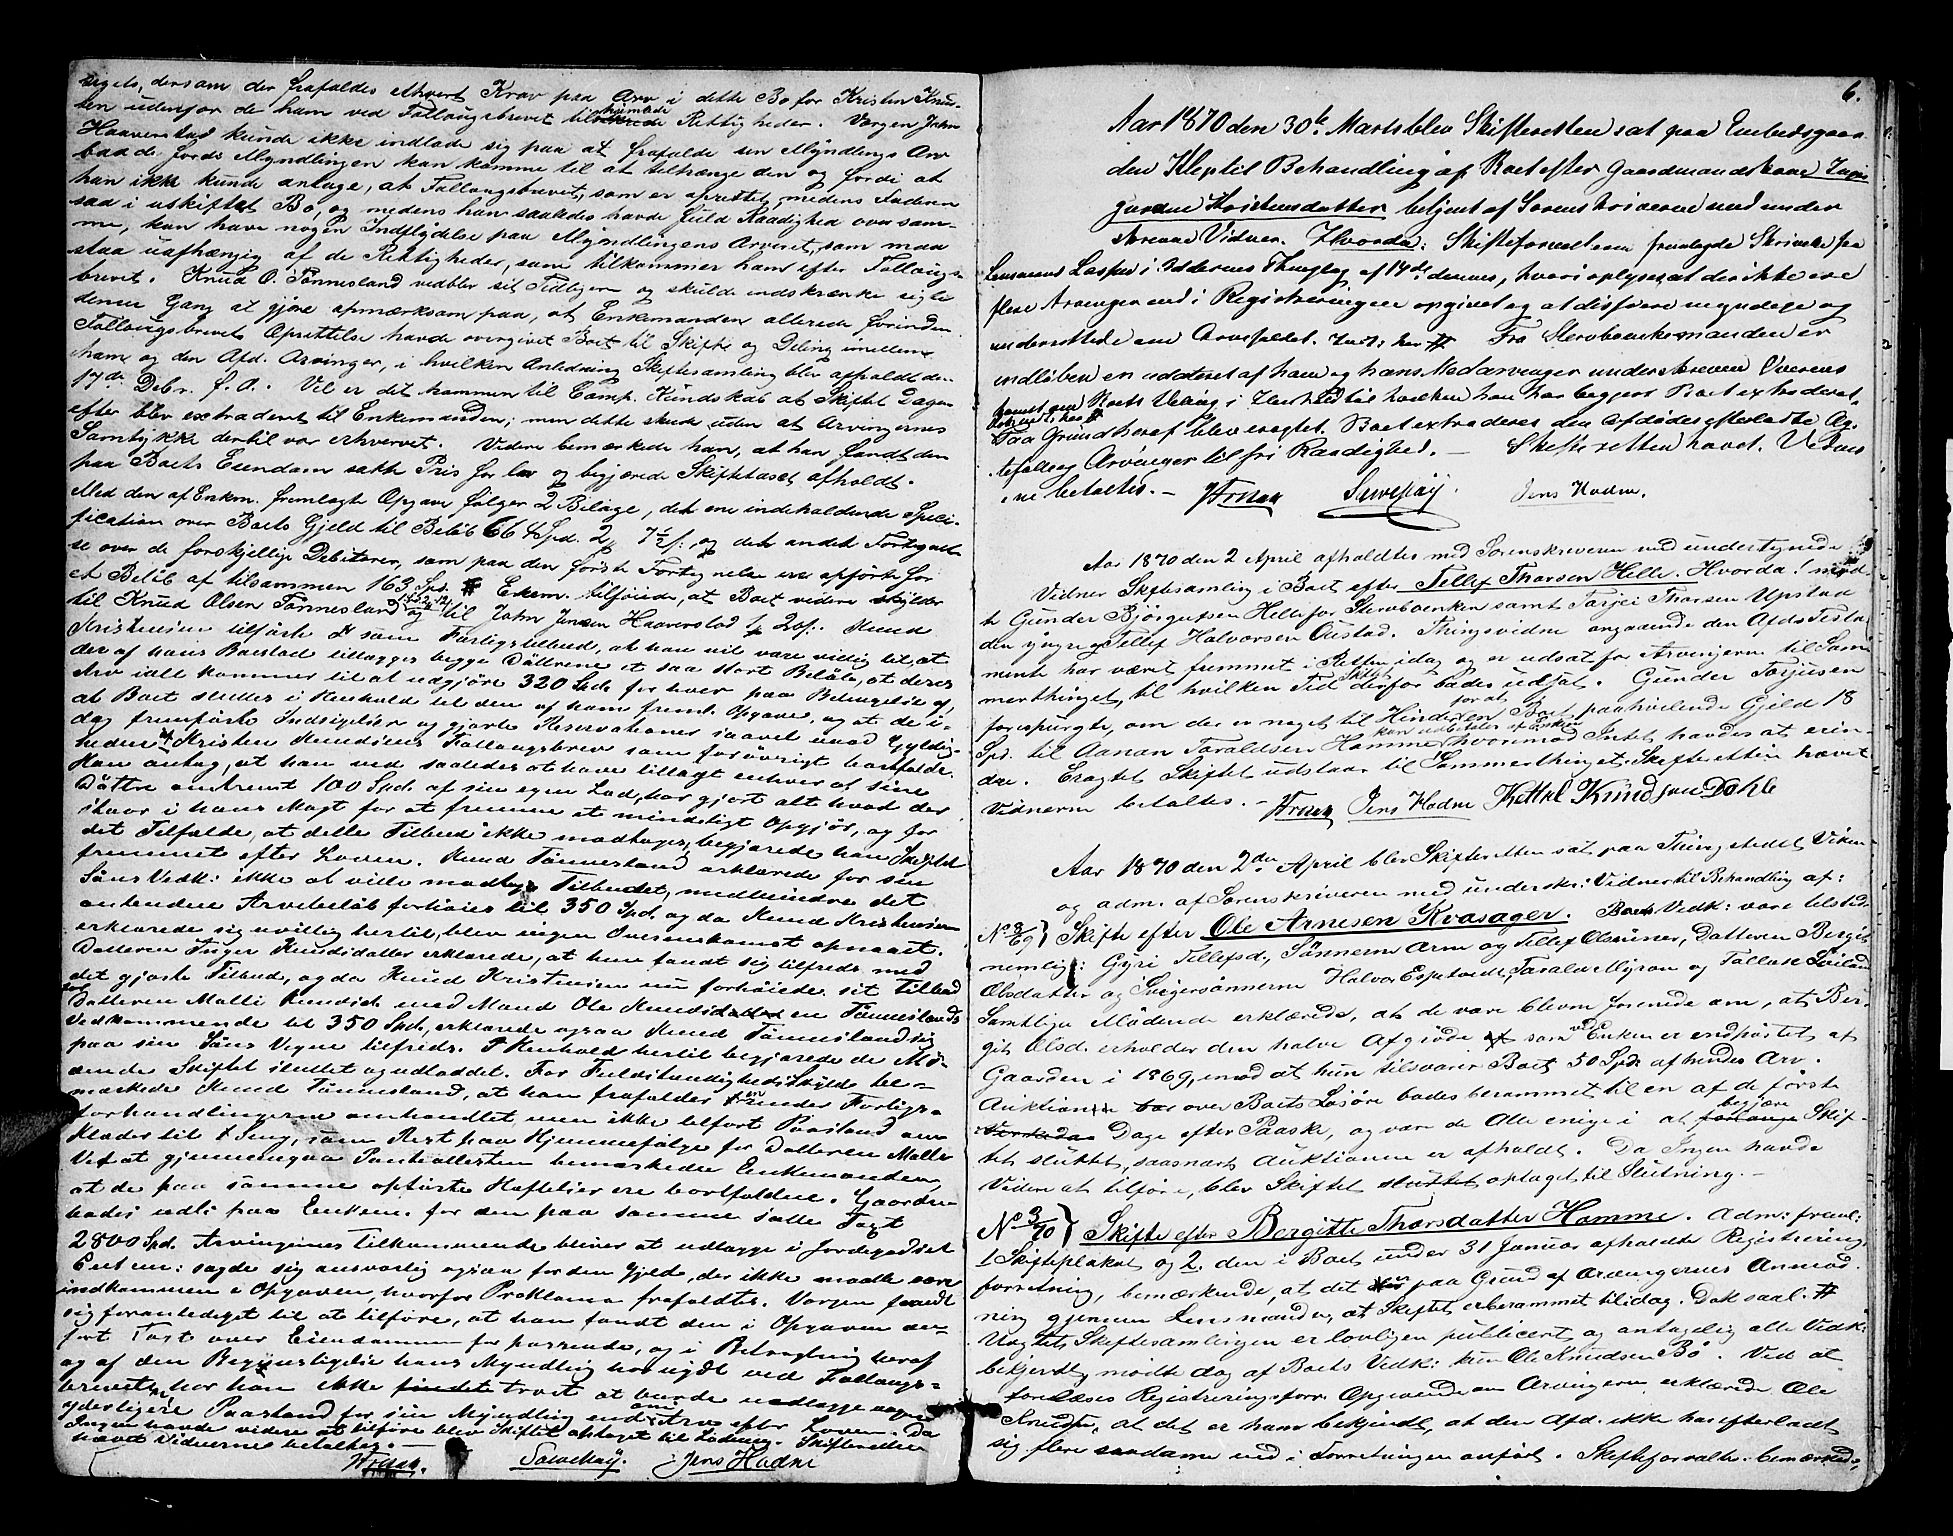 segels, dersom der frafaldes ethvert Krav paa Arv i dette Bo for Kristen Knud-
sen udenfor de ham ved Følaugsbrevet tilkomne Rettigheder. Værgen John
Haaverstad kunde ikke indlade sig paa at frafalde sin Myndlings Arv
baade fordi Myndlingen kan komme til at tiltrænge den og fordi at
han ikke kunde antage, at Føllaugsbrevet, som er oprettet, medens Faderen
sad i uskiftet Bo, og medens han saaledes havde fuld Raadighed over sam-
me, kan have nogen Indflydelse paa Myndlingens Arveret, som maa
staa uafhængig af de Rettigheder, som tilkommer ham efter Føllaugs-
brevet. Knud O. Tønnesland vedblev sit Tidligere og skulde indskrænke sig til
denne Gang at gjøre opmærksom paa, at Enkemanden allerede forinden
Føllaugsbrevets Oprettelse havde overgivet Boet til Skifte og Deling imellem
ham og den Afd. Arvinger, i hvilken Anledning Skiftesamling blev afholdt den
17de Debr. f. A. Vel er det kommen til Comp. Kundskab at Skiftet Dagen
efter blev extraderet til Enkemanden; men dette skede uden at Arvingernes
Samtykke dertil var erhvervet. Videre bemærkede han, at han fandt den
paa Boets Eiendom satte Pris for lav og begjærede Skiftetaxt afholdt.
Med den af Enkem. fremlagte Opgave følger 2 Bilage, det ene indeholdende Speci-
fication over Boets Gjeld til Beløb 664 Spd. 2 7½ s. og det andet Fortegnel-
se over de forskjellige Debitorer, som paa den første Fortegnelse ere opførte for
et Beløb af tilsammen 163 Spd. # Enkem. tilføiede, at Boet videre skylder
til Knud Olsen Tønnesland og til John Jensen Haaverstad 1 20 s. Knud
Kristensen tilførte # som Forligstilbud, at han vil være villig til, at
der af hans Boeslod tillægges begge Døttrene et saa stort Beløb, at deres
Arv ialt kommer til at udgjøre 320 Spd. for hver paa Betingelse af,
at Boet sluttes i Henhold til den af ham freml. Opgave, og at de i-
dag fremførte Indsigelser og gjorte Reservationer saavel mod Gyldig-
heden af Kristen Knudsens Føllaugsbrev som forøvrigt bortfalde.
Han antog, at han ved saaledes at have tillagt enhver af sine
Døttre omtrent 100 Spd. af sin egen Lod, har gjort alt hvad der
staar i hans Magt for at fremme et mindeligt Opgjør, og for
det Tilfælde, at dette Tilbud ikke modtages, begjærede han Skiftet
fremmet efter Loven. Knud Tønnesland erklærede for sin
Søns Vedk: ikke at ville modtage Tilbudet, medmindre det
anbudne Arvebeløb forhøies til 350 Spd. og da Knud Kristensen
erklærede sig uvillig hertil, blev ingen Overenskomst opnaaet.
Datteren Inger Knudsdatter erklærede, at hun fandt sig tilfreds med
det gjorte Tilbud, og da Knud Kristensen nu forhøiede sit Tilbud
for Datteren Malli Knudsd. med Mand Ole Knudsen Tønneslands
Vedkommende til 350 Spd., erklærede ogsaa Knud Tønnesland sig
paa sin Søns Vegne tilfreds. I Henhold hertil begjærede de Mø-
dende Skiftet sluttet og udloddet. For Fuldstændigheds Skyld be-
mærkede Knud Tønnesland, at han frafalder en under Forligs-
forhandlingerne omhandlet men ikke tilført Paastand om
Klæder til 1 Seng, som Rest paa Hjemmefølge for Datteren Malli
Ved at gjennemgaa Panteattesten bemærkede Enkemanden,
at de paa samme opførte Heftelser ere bortfaldne. Gaarden
bedes udl: paa Enkem: for den paa samme satte Taxt
2800 Spd. Arvingernes Tilkommende bliver at udlægge i Jordegodset
Enkem: sagde sig ansvarlig ogsaa for den Gjeld, der ikke maatte være
indkommen i Opgaven, hvorfor Proklama frafaldtes. Værgen fandt
sig foranlediget til at tilføre, at han fandt den i Opgaven an-
ført Taxt over Eiendommen for passende, og i Betragtning heraf
og af den Begunstigelse hans Myndling har nydt ved Føllaugs-
brevet, har han ikke troet at burde nedlægge nogen
yderligere Paastand for sin Myndling end om Arv efter Loven. Da
Ingen havde videre at tilføre blev Skiftet optaget til Lodning. Skifteretten
hævet Vidnerne betaltes.
Salveson. Jens Hodne
6.
Aar 1870 den 30te Marts blev Skifteretten sat paa Embedsgaar-
den Klep til Behandling af Boet efter Gaardmandskone Inge-
gjerdne Kristensdatter betjent af Sorenskriveren med under-
skrevne Vidner. Hvorda: Skifteforvalteren fremlagde Skrivelse fra
Lensmand Læsper i Østdernes Thinglag af 14de dennes, hvori oplyses, at der ikke ere
flere Arvinger end i Registreringen opgivet og at disse ere myndige og
underrettede om Arvefaldet. Indt: her # Fra Sterboenkemanden er
indløben en udateret af ham og hans Medarvinger underskreven Overens-
komst om Boets Deling i Henhold til hvilken han har begjært Boet extraderet.
Paa Grund heraf blev eragtet. Boet extraderes den Afdødes efterladte Æg-
tefælle og Arvinger til fri Raadighed. — Skifteretten hævet. Vidner-
ne betaltes. —
Salveson. Jens Hodne.
Aar 1870 den 2 April afholdtes med Sorenskriveren ved undertegnede
Vidner Skiftesamling i Boet efter Tellef Thorsen Helle. Hvorda! mød-
te Gunder Bjørgufsen Helle for Sterboenken samt Torjei Thorsen Upstad
den yngre og Tellef Halvorsen Oustad. Thingsvidne angaaende den Afds Testa-
mente har været fremmet i Retten idag og er udsat for Arvingerne til Som-
merthinget, til hvilken Tid Skiftet derfor bedes udsat. Gunder Torjusen
forespurgte, om der er noget til Hinder for at en Boet paahvilende Gjeld 18
Spd. til Aanon Taraldsen Hamme kan udbetales af Enken hvorimod Intet havdes at erin-
dre. Eragtet Skiftet udstaar til Sommerthinget. Skifteretten hævet
Vidnerne betaltes. —
Jens Hodne Kittel Knudsen Dahle
Aar 1870 den 2den April blev Skifteretten sat paa Thingstedet Viken
og adm. af Sorenskriveren med underskr: Vidner til Behandling af:
No 3/69} Skifte efter Ole Arnesen Kvasager. Boets Vedk: vare tilsted
nemlig: Gyri Tellefsd., Sønnerne Arne og Tellef Olssønner, Datteren Bergit
Olsdatter og Svigersønnerne Halvor Espetvedt, Tarald Myran og Tallak Loiland
Samtlige Mødende erklærede, at de vare blevne forenede om, at Ber-
git Olsd. erholder den halve Afgrøde som ved Enken er endhøstet af
Gaarden i 1869, mod at hun tilsvarer Boet 50 Spd. af hendes Arv.
Auktion over Boets Løsøre bedes berammet til en af de første
Dage efter Paaske, og vare de Alle enige i at begjære Skif-
tet sluttet, saasnart Auktionen er afholdt. Da Ingen havde
Videre at tilføre, blev Skiftet optaget til Slutning. —
No 3/70} Skifte efter Bergitte Thorsdatter Hamme. Adm: freml:
1 Skifteplakat og 2, den i Boet under 31 Januar afholdte Registrering
forretning, bemærkende, at det er paa Grund af Arvingernes Anmod-
ning gjennem Lensmanden, at Skiftet er berammet til idag. Dok saal. #
Uagtet Skiftesamlingen er lovligen publicert og antagelig alle Vedk:
bekjendt, mødte dog af Boets Vedk: kun Ole Knudsen Bø. Ved at
forelæses Registreringsforr. Opgivende om Arvingerne erklærede Ole
Knudsen, at det er ham bekjendt, at den Afd. ikke har efterladt
sig flere saadanne end i Forretningen anført. Skifteforvalte. bemærkede,